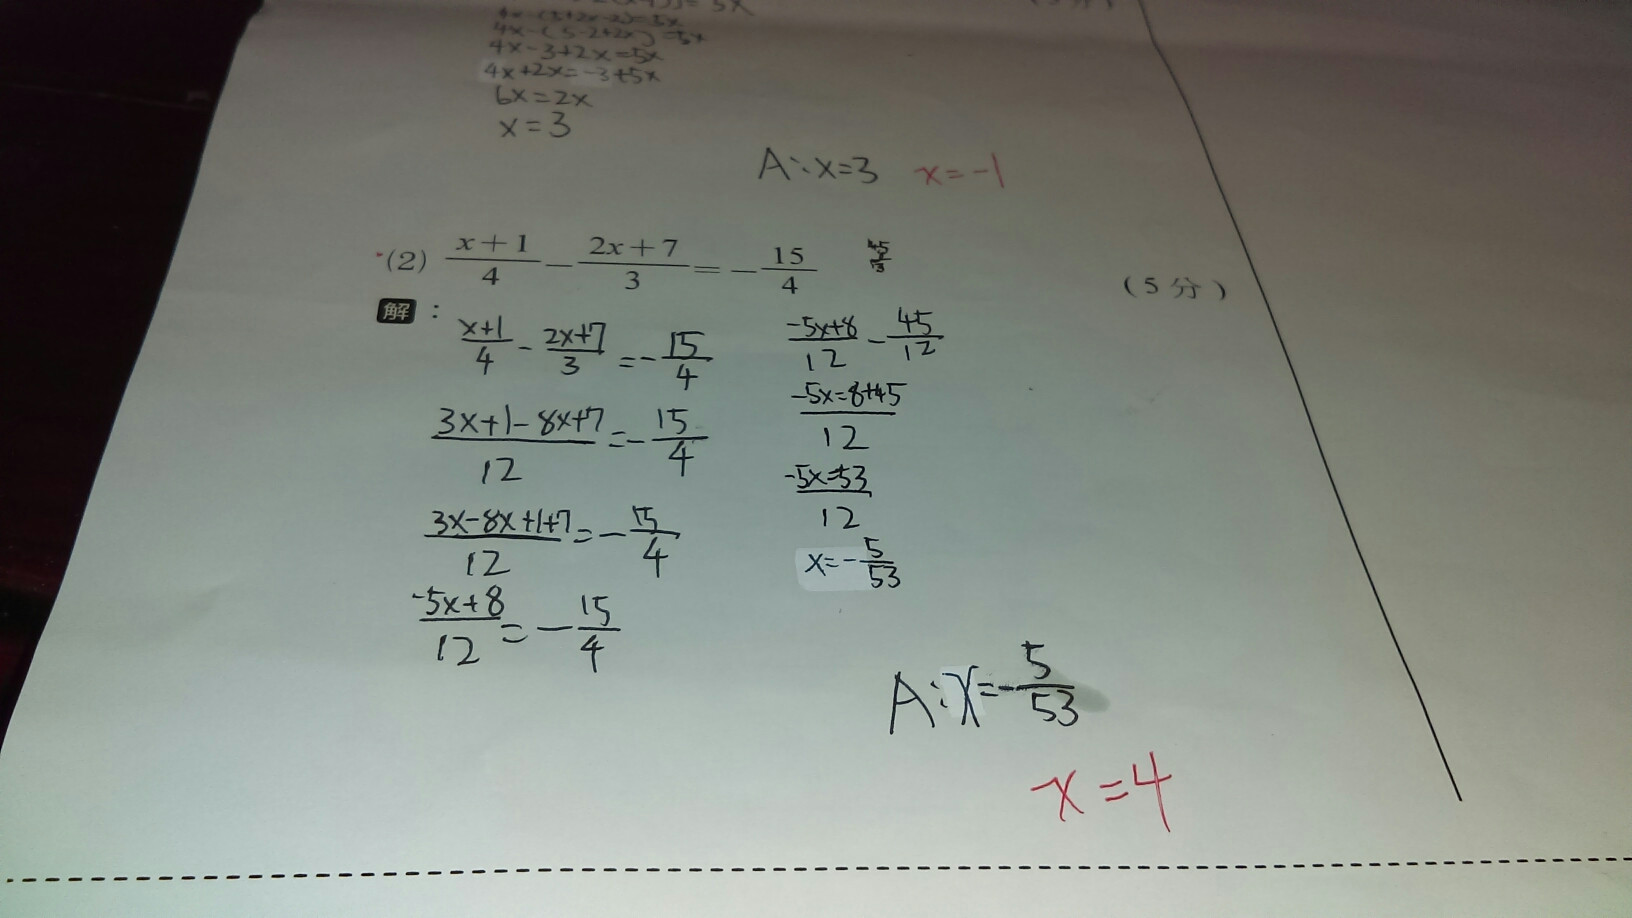 4x-3+2x=5x
4x+2x=-3+5x
6x=2x
x=3
A:x=3 x=-1
(2) \frac{x+1}{4}-\frac{2x+7}{3}=-\frac{15}{4}
(5分)
解:
\frac{x+1}{4}-\frac{2x+7}{3}=-\frac{15}{4}
\frac{3x+1-8x+7}{12}=-\frac{15}{4}
\frac{3x-8x+1+7}{12}=-\frac{15}{4}
\frac{-5x+8}{12}=-\frac{15}{4}
\frac{-5x+8}{12}-\frac{45}{12}
\frac{-5x=8+45}{12}
\frac{-5x=53}{12}
x=-\frac{5}{53}
A:x=-\frac{5}{53}
x=4